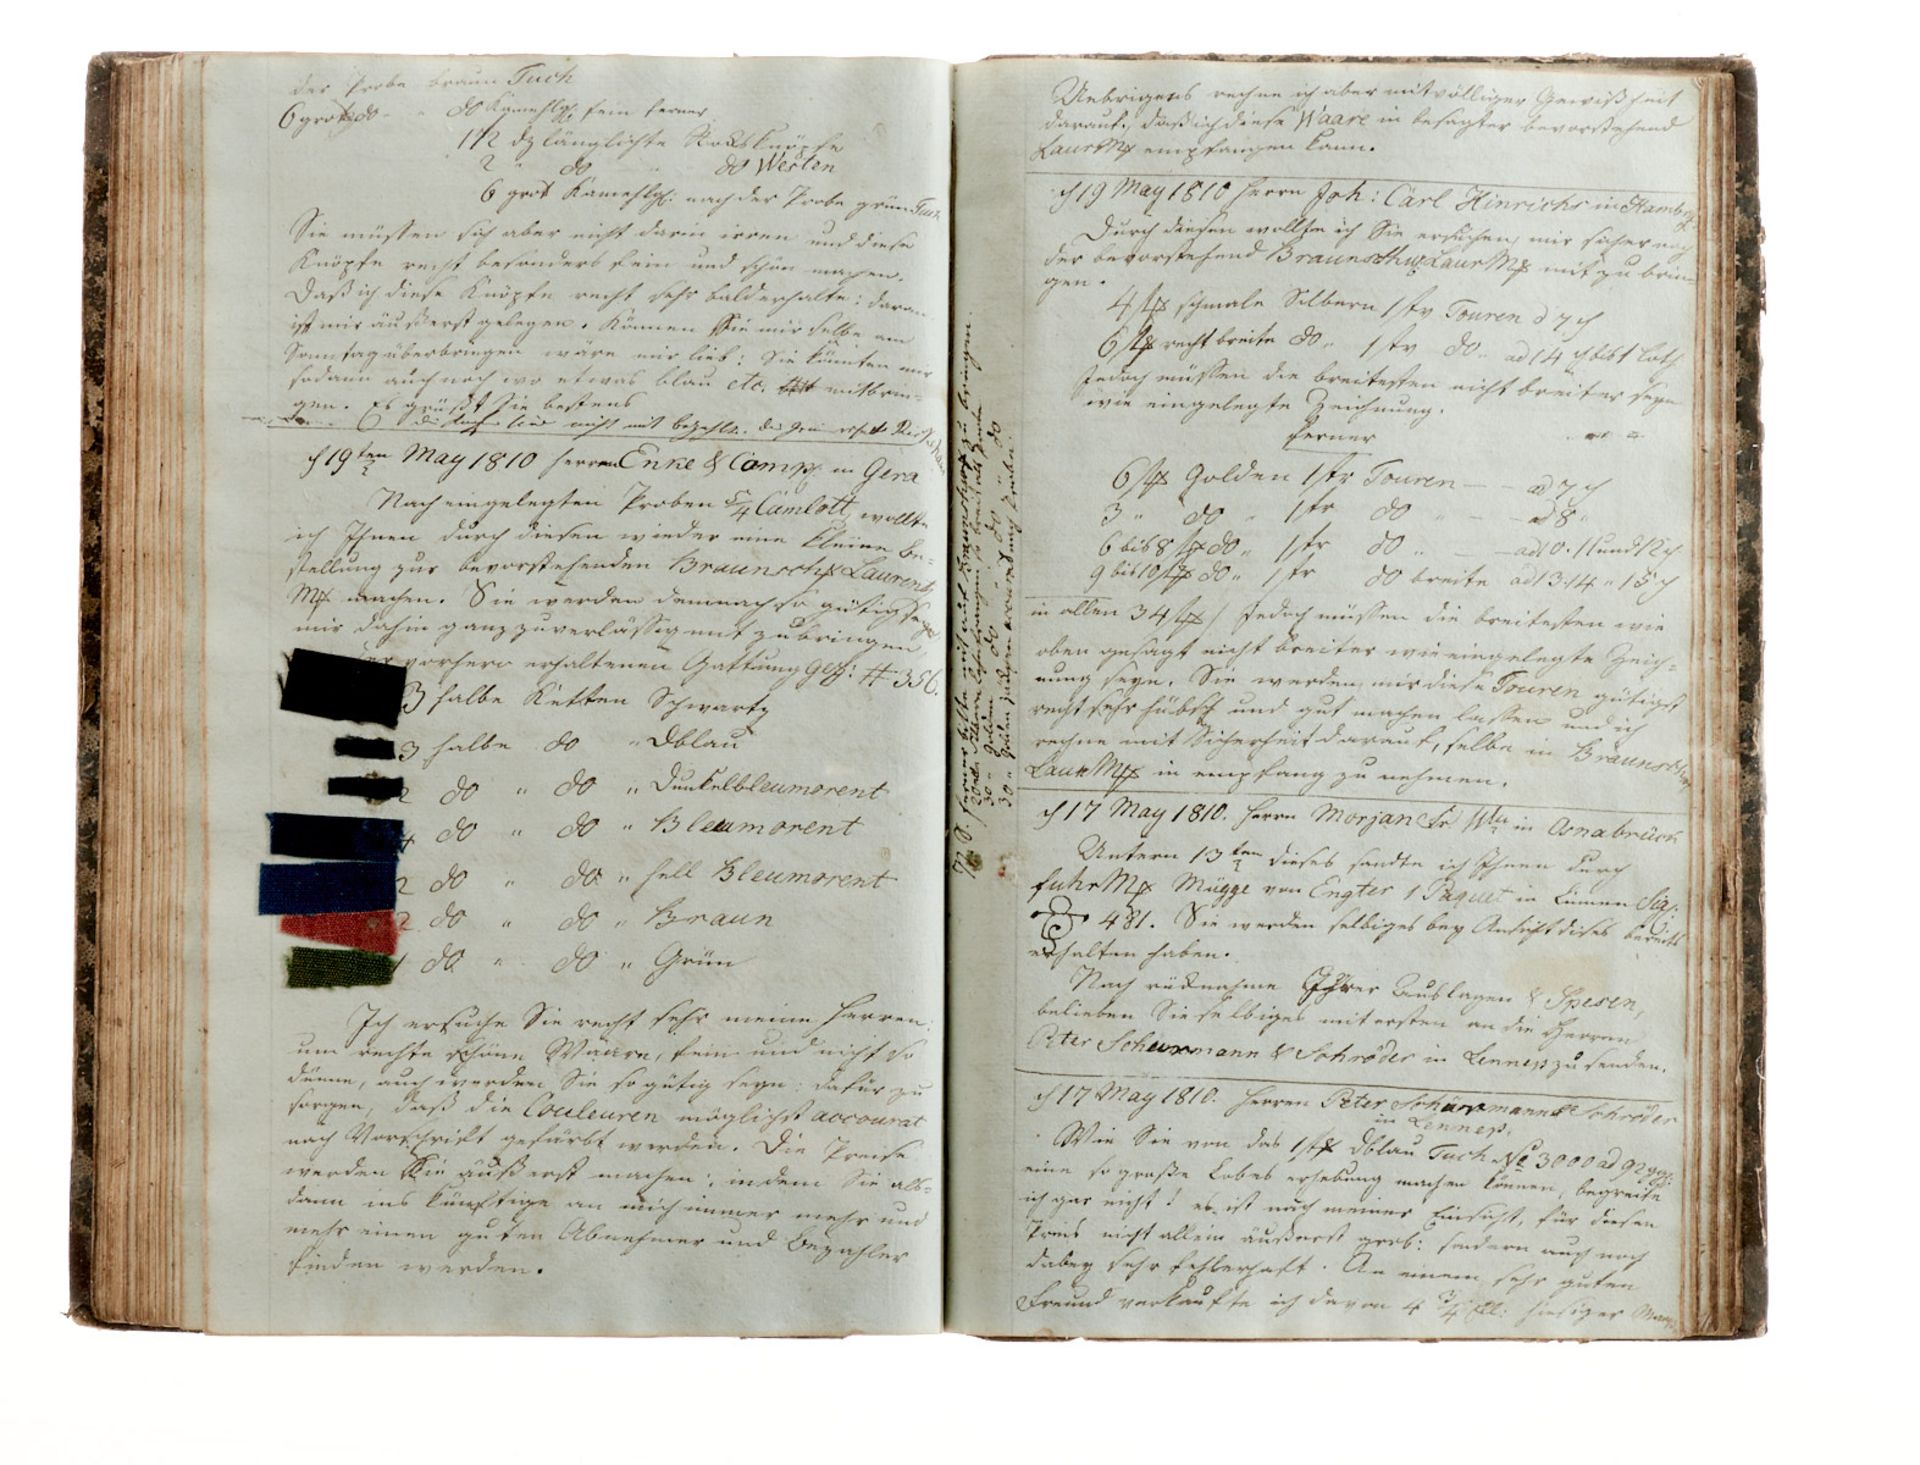 der Probe braun Tuch
6 grot do " do Kamehlg. fein ferner
1 1/2 dz längliche Rocksknöpfe
2 " do " do Westen
6 grot Kamehlg: nach der Probe grün Tuch
Sie müssen sich aber nicht darin irren und diese
Knöpfe recht besonders fein und schön machen.
Daß ich diese Knöpfe recht sehr bald erhalte: daran
ist mir äußerst gelegen. Können Sie mir selbe am
Sonntag überbringen wäre mir lieb: Sie könnten mir
sodann auch noch wo etwas blau etc. mitbrin=
gen. Es grüßt Sie bestens
nicht mit bezahlt.
d 19ten May 1810 Herren Enke & Comp. in Gera
Nach eingelegten Proben 5/4 Camlott, wollte
ich Ihnen durch diesen wieder eine kleine Be=
stellung zur bevorstehenden Braunschg Laurentz
Mß machen. Sie werden demnach so gütig seyn
mir dahin ganz zuverlässig mit zu bringen,
vorhero erhaltenen Gattung Gez: # 356.
3 halbe Ketten Schwartz
3 halbe do " Dblau
2 do " do " Dunkelbleumorent
4 do " do " Bleumorent
2 do " do " hell Bleumorent
2 do " do " Braun
1 do " do " Grün
Ich ersuche Sie recht sehr meine Herren:
um rechte schöne Waare, fein und nicht so
dünne, auch werden Sie so gütig seyn: dafür zu
sorgen, daß die Couleuren möglichst accourat
nach Vorschrift gefärbt werden. Die Preise
werden Sie äußerst machen: indem Sie als=
dann ins künftige an mich immer mehr und
mehr einen guten Abnehmer und Bezahler
finden werden.
P. S. ferner bitte mich auf Braunschweig zu bringen.
30 " Golden do do
Uebrigens rechne ich aber mit völliger Gewißheit
darauf, daß ich diese Waare in besagter bevorstehend
Laur Mß empfangen kann.
d 19 May 1810 Herrn Joh: Carl Hinrichs in Hambrg
Durch diesen wollte ich Sie ersuchen, mir sicher nach
der bevorstehend Braunschwg Laur Mß mit zu brin=
gen.
4 Stß schmale Silbern 1ste Touren d 7 ch
6 Stß recht breite do " 1ste do " ad 14 ch bis 1 Loth
Jedoch müssen die breitesten nicht breiter seyn
wie eingelegte Zeichnung.
ferner
6 Stß Golden 1ste Touren — ad 7 ch
3 " do " 1ste do " — ad 8 "
6 bis 8 Stß do " 1ste do " — ad 10. 11 und 12 ch
9 bis 10 Stß do " 1ste do breite ad 13. 14 " 15 ch
in allen 34 Stß / Jedoch müssen die breitesten wie
oben gesagt nicht breiter wie eingelegte Zeich=
nung seyn. Sie werden mir diese Touren gütigst
recht sehr hübsch und gut machen lassen und ich
rechne mit Sicherheit darauf, selbe in Braunschwg
Laur Mß in empfang zu nehmen.
d 17 May 1810. Herrn Morjan Sr Wtw in Osnabrück
Untern 13ten dieses sandte ich Ihnen durch
fuhr Mß Mügge von Engter 1 Paquet in Linnen Sig:
481. Sie werden selbiges bey Ansicht dises bereits
erhalten haben.
Nach rücknahme Ihrer Auslagen & Spesen,
belieben Sie selbiges mit ersten an die Herren
Peter Schürmann & Schröder in Lennep zu senden.
d 17 May 1810. Herren Peter Schürmann & Schröder
in Lennep.
Wie Sie von das 1 Stß dblau Tuch No 3000 ad 92 ggr:
eine so große Lobes erhebung machen können, begreife
ich gar nicht! es ist nach meiner Einsicht, für diesen
Preis nicht allein äußerst grob: sondern auch noch
dabey sehr fehlerhaft. An einem sehr guten
Freund verkaufte ich davon 4 3/4 Ell: hiesiger